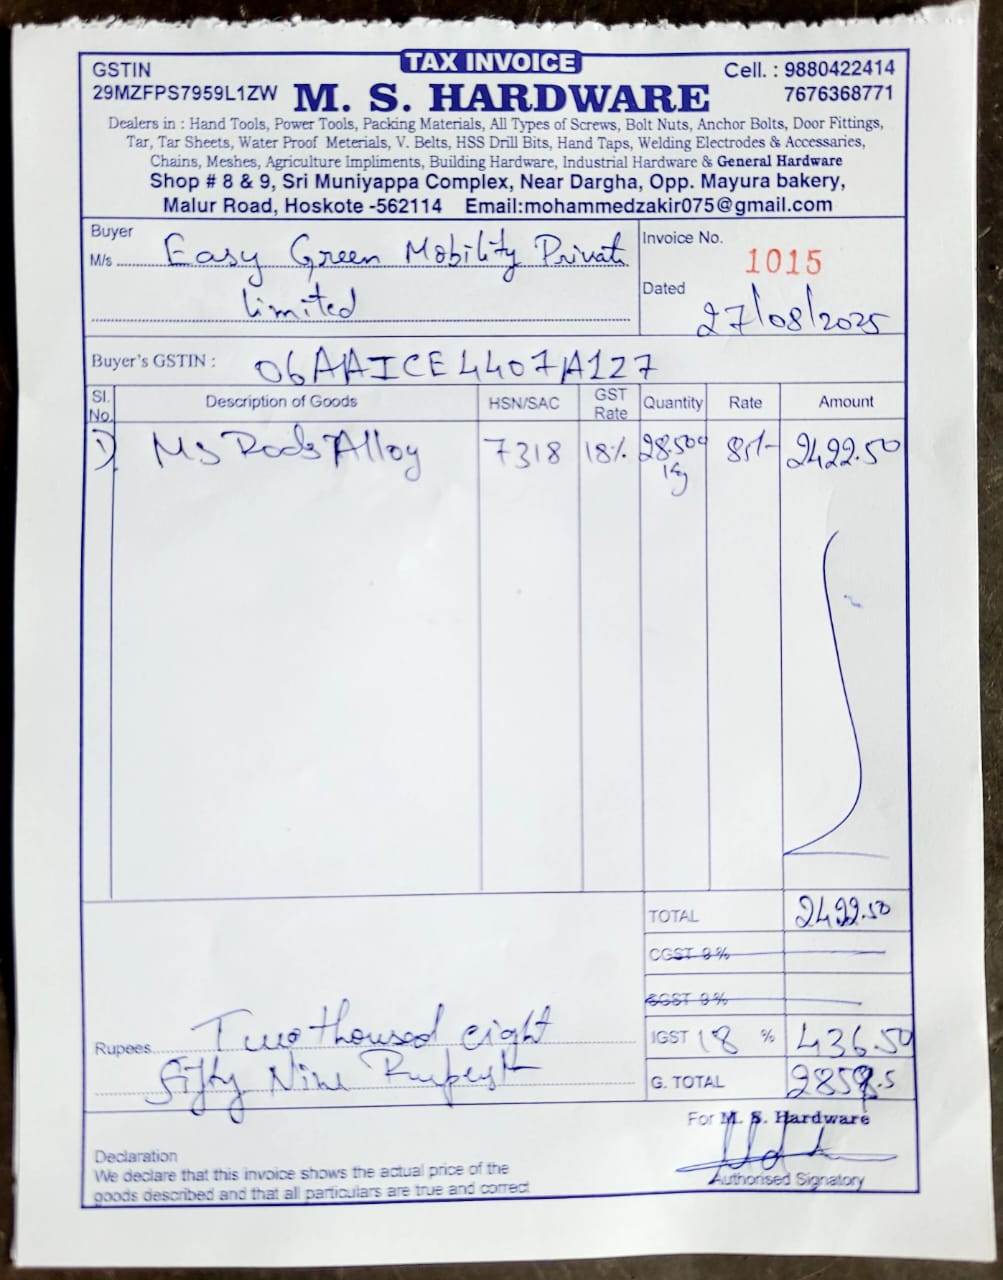 TAX INVOICE
GSTIN
29MZFPS7959L1ZW
Cell. : 9880422414
7676368771
M. S. HARDWARE
Dealers in : Hand Tools, Power Tools, Packing Materials, All Types of Screws, Bolt Nuts, Anchor Bolts, Door Fittings,
Tar, Tar Sheets, Water Proof Meterials, V. Belts, HSS Drill Bits, Hand Taps, Welding Electrodes & Accessaries,
Chains, Meshes, Agriculture Impliments, Building Hardware, Industrial Hardware & General Hardware
Shop # 8 & 9, Sri Muniyappa Complex, Near Dargha, Opp. Mayura bakery,
Malur Road, Hoskote -562114 Email:mohammedzakir075@gmail.com
Buyer
M/s Easy Green Mobility Private
Limited
Invoice No.
1015
Dated
27/08/2025
Buyer's GSTIN : 06AAICE4407A1Z7
Sl. No. Description of Goods HSN/SAC GST Rate Quantity Rate Amount
1) MS Rods Alloy 7318 18% 28.500 kg 85/- 2422.50
TOTAL 2422.50
CGST 9%
SGST 9%
IGST 18 % 436.50
G. TOTAL
Rupees Two thoused eight
fifty Nine
For M. S. Hardware
Authorised Signatory
Declaration
We declare that this invoice shows the actual price of the
goods described and that all particulars are true and correct